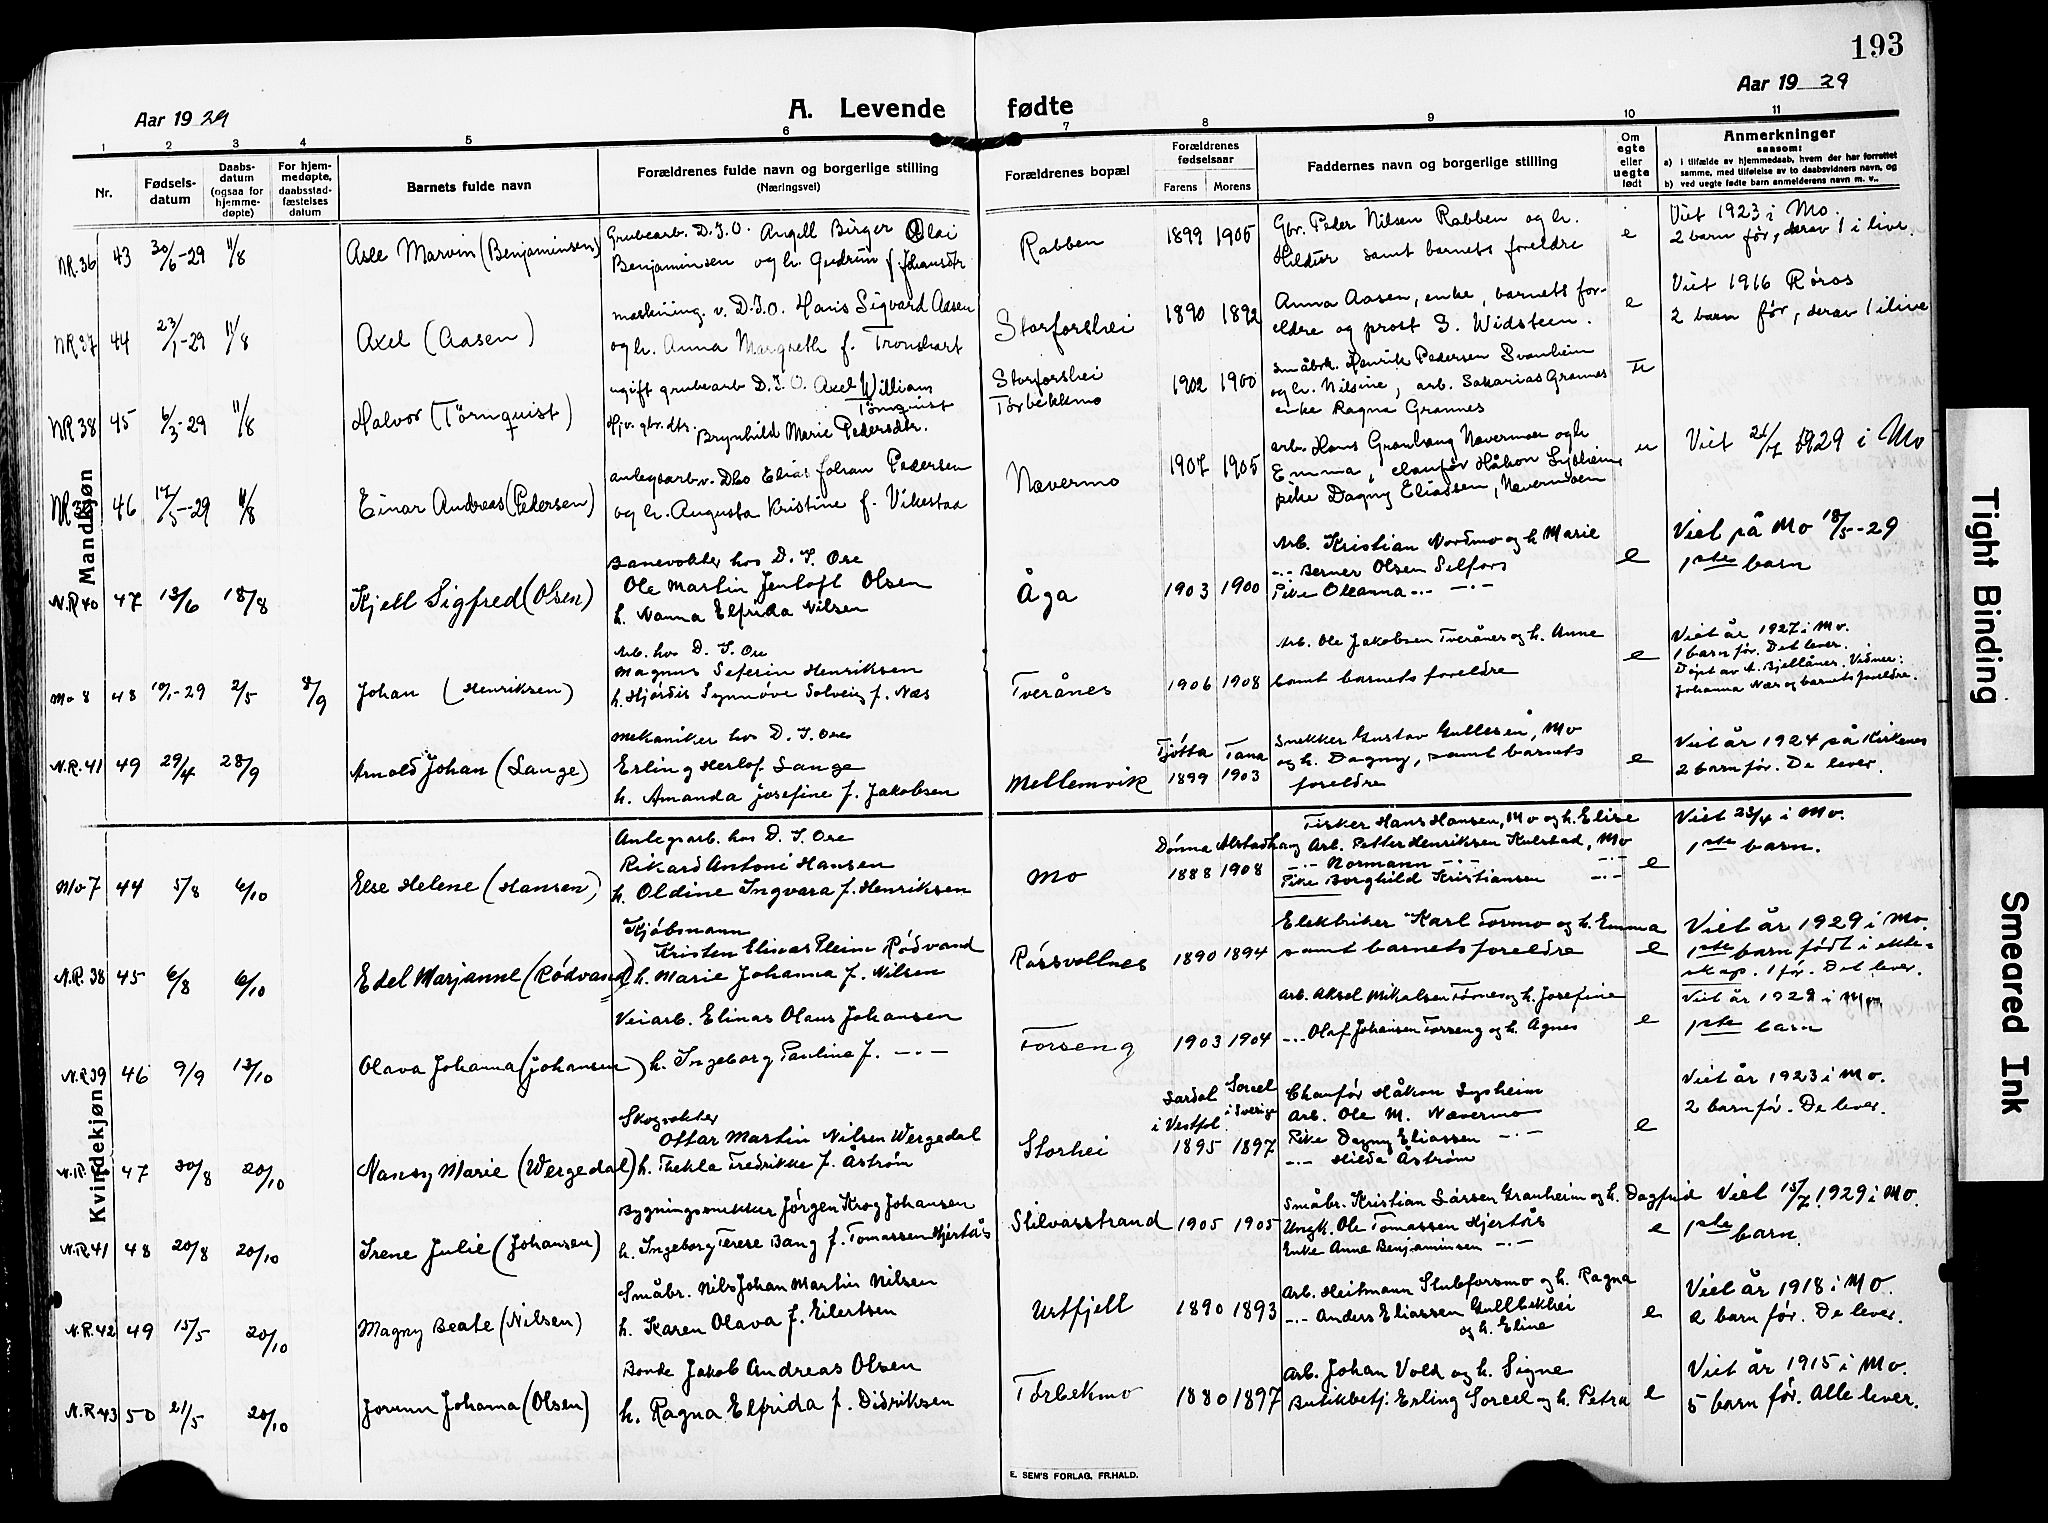 193
Aar 1929
A. Levende fødte
Aar 1929
1 2 3 4 5 6 7 8 9 10 11
Nr.
Fødsels-datum
Daabs-datum (ogsaa for hjemme-døpte)
For hjem-medøpte, daabsstad-fæstelses datum
Barnets fulde navn
Forældrenes fulde navn og borgerlige stilling
(Næringsvei)
Forældrenes bopæl
Forældrenes fødselsaar
Farens Morens
Faddernes navn og borgerlige stilling
Om egte eller uegte født
Anmerkninger
saasom:
a) i tilfælde av hjemmedaab, hvem der har forrettet samme, med tilføielse av to daabsvidners navn, og
b) ved uegte fødte barn anmelderens navn m. v..
Mandkjøn
NR.36 43 30/6-29 11/8 Asle Marvin (Benjaminsen)
Grubearb. D.I.O. Angell Birger Olai
Benjaminsen og h. Gudrun f. Johansdtr
Rabben 1899 1905
Gbr. Peder Nilsen Rabben og h.
Hildur samt barnets foreldre
e
Viet 1923 i Mo.
2 barn før, derav 1 i live.
NR37 44 23/1-29 11/8 Axel (Aasen)
maskining. v. D.I.O. Hans Sigvard Aasen
og h. Anna Margreth f. Tronshart
Storforshei 1890 1892
Anna Aasen, enke, barnets for-
eldre og prost S. Widsteen.
e
Viet 1916 Røros
2 barn før, derav 1 i live
NR38 45 6/3-29 11/8 Halvor (Törnquist)
ugift grubearb D.I.O. Axel William
Törnquist
Hjv. gbr.dtr. Brynhild Marie Pedersdtr.
Storforshei
Tørbekkmo
1902 1900
småbrk. Henrik Pedersen Svanheim
og h. Nilsine, arb. Sakarias Grannes
enke Ragna Grannes
46 17/5-29 11/8 Einar Andreas (Pedersen)
anlegsarb v. DIO Elias Johan Pedersen
og h. Augusta Kristine f. Vikestaa
Nævermo 1907 1905
arb. Hans Granhaug Nævermoen og h
Emma, chauför Håkon Sysheim
pike Dagny Eliassen, Nævermoen
u
Viet 21/7 1929 i Mo
N.R 40 47 13/6 18/8 Kjell Sigfred (Olsen)
Banevokter hos D. I. Ore
Ole Martin Jentoft Olsen
h. Nanna Elfrida Nilsen
Åga 1903 1900
Arb. Kristian Nordmo og h Marie
-..- Berner Olsen Selfors
Pike Oleanna -..- -..-
e
Viet på Mo 18/5-29
1ste barn
Mo 8 48 19/1-29 2/5 8/9 Johan (Henriksen)
Arb. hos D. I. Ore
Magnus Seferin Henriksen
h. Hjørdis Synnøve Solveig f. Næs
Tverånes 1906 1908
Arb. Ole Jakobsen Tverånes og h. Anne
samt barnets foreldre
e
Viet år 1927 i Mo.
1 barn før. Det lever.
Døpt av A. Bjellåner. Vidner:
Johanna Næs og barnets foreldre.
N.R.41 49 29/4 28/9 Arnold Johan (Lange)
Mekaniker hos D. I. Ore
Erling Herlof Lange
h. Amanda Josefine f. Jakobsen
Mellemvik
Tjøtta Tana
1899 1903
Snekker Gustav Gullesen, Mo
og h. Dagny, samt barnets
foreldre
e
Viet år 1924 på Kirkenes
2 barn før. De lever.
Kvindekjøn
Mo 7 44 5/8 6/10 Else Helene (Hansen)
Anlegsarb. hos D. I. Ore
Rikard Antoni Hansen
h. Oldine Ingvara f. Henriksen
Mo
Dønna Alstadhaug
1888 1908
Fisker Hans Hansen, Mo og h. Elise
Arb. Petter Henriksen Kulstad, Mo
-..- Normann -..- -..-
Pike Borghild Kristiansen -..-
e
Viet 23/4 i Mo.
1ste barn.
N.R. 38 45 6/8 6/10 Edel Marjanne (Rødvand)
Kjøbmann
Kristen Elinas Plein Rødvand
h. Marie Johanna f. Nilsen
Røssvollnes 1890 1894
Elektriker Karl Formo og h. Emma
samt barnets foreldre
e
Viet år 1929 i Mo.
1ste barn født i ekte-
skap. 1 før. Det lever.
N.R 39 46 9/9 13/10 Olava Johanna (Johansen)
Veiarb. Elinas Olaus Johansen
h. Ingeborg Pauline f. -..-
Forseng 1903 1904
Arb. Aksel Mikalsen Fornes og h. Josefine
-..- Olaf Johansen Forseng og h. Agnes
e
Viet år 1929 i Mo
1ste barn
47 20/8 20/10 Nancy Marie (Wergedal)
Skogvokter
Ottar Martin Nilsen Wergedal
h. Thekla Fredrikke f. Åström
Storhei
Lardal i Vestfol. Sorsel i Sverige
1895 1897
Chauför Håkon Sysheim
Arb. Ole M. Nævermo
Pike Dagny Eliassen -..-
-..- Hilda Åström
e
Viet år 1923 i Mo.
2 barn før. De lever.
N.R.41 48 20/8 20/10 Irene Julie (Johansen)
Bygningssnekker Jørgen Krog Johansen
h. Ingeborg Terese Bang f. Tomassen Hjertås
Stilvasstrand 1905 1905
Småbr. Kristian Larsen Granheim og h. Dagfrid
Ungk. Ole Tomassen Hjertås
Enke Anne Benjaminsen -..-
e
Viet 15/7 1929 i Mo.
1ste barn.
N.R.42 49 15/5 20/10 Magny Beate (Nilsen)
Småbr. Nils Johan Martin Nilsen
h. Karen Olava f. Eilertsen
Urtfjell 1890 1893
Arb. Heitmann Stubforsmo og h. Ragna
-..- Anders Eliassen Gullbekhei
og h. Eline
e
Viet år 1918 i Mo.
2 barn før. De lever.
N.R 43 50 21/5 20/10 Jorunn Johanna (Olsen)
Bonde Jakob Andreas Olsen
h. Ragna Elfrida f. Didriksen
Tørbekmo 1880 1897
Arb. Johan Vold og h. Signe
Butikbetj. Erling Sorsel og h. Petra
e
Viet år 1915 i Mo.
5 barn før. Alle lever.
E. SEM'S FORLAG, FR.HALD.
Tight Binding
Smeared Ink